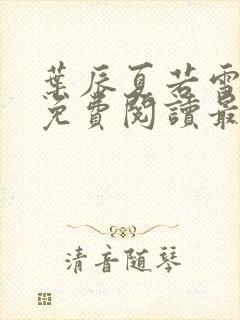 葉辰夏若雪
免費閱讀最
清音随琴